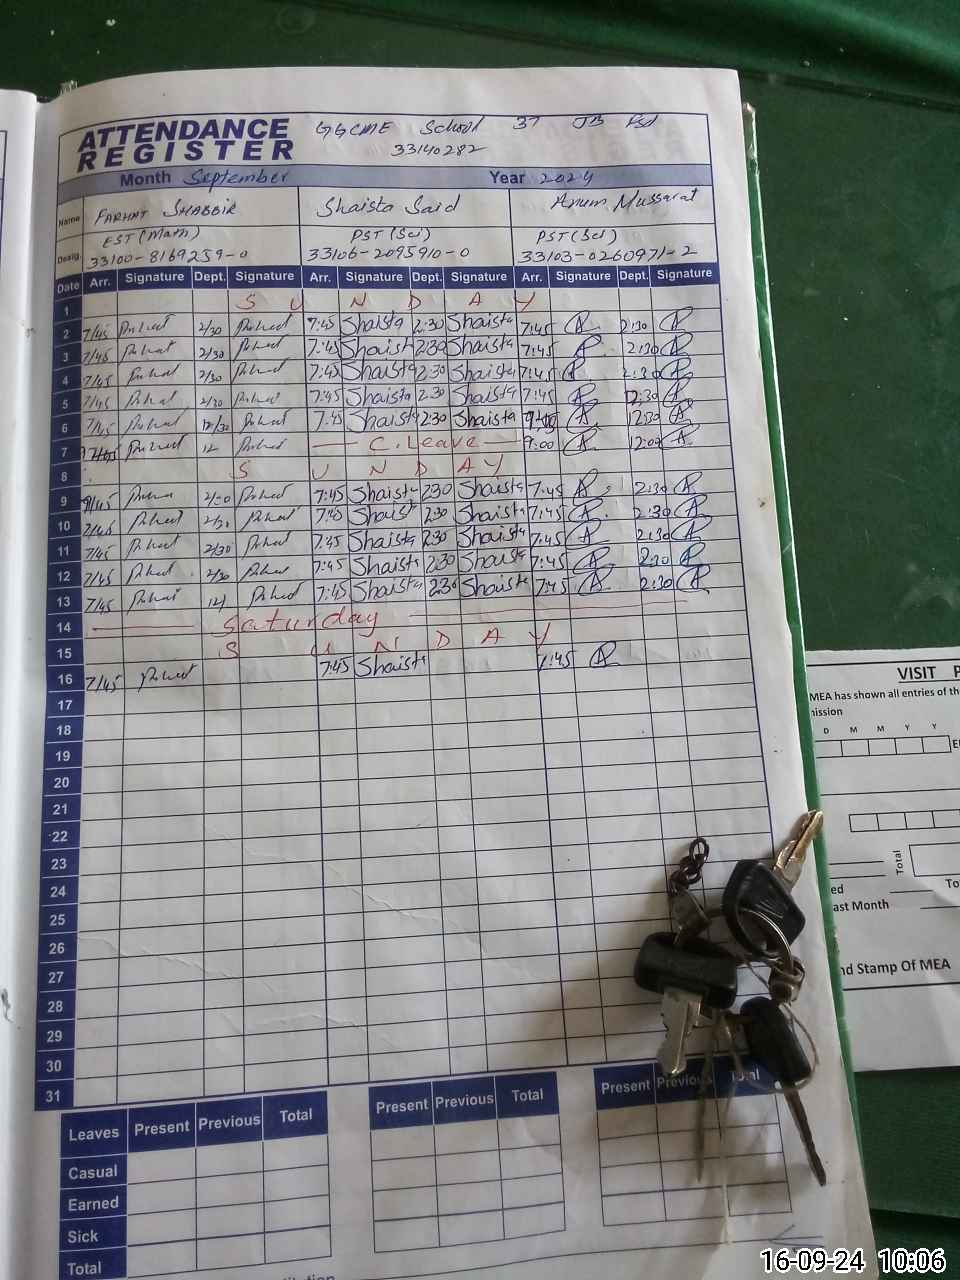 ATTENDANCE REGISTER
GGCME School 37 JB Fsd
33140282
Month September Year 2024
Name FARHAT SHABBIR Shaista Said Anum Mussarat
Desig. EST (Math) PST (Sci) PST (Sci)
33100-8169259-0 33106-2095910-0 33103-0260971-2
Date Arr. Signature Dept. Signature Arr. Signature Dept. Signature Arr. Signature Dept. Signature
1 S U N D A Y
2 7/45 2/30 7:45 Shaista 2:30 Shaista 7:45 2:30
3 7/45 2/30 7:45 Shaista 2:30 Shaista 7:45 2:30
4 7/45 2/30 7:45 Shaista 2:30 Shaista 7:45 2:30
5 7/45 2/30 7:45 Shaista 2:30 Shaista 7:45 12:30
6 7/45 12/30 7:45 Shaista 2:30 Shaista 12:30
7 12 C. Leave 9:00 12:00
8 S U N D A Y
9 2/30 7:45 Shaista 2:30 Shaista 7:45 2:30
10 7/45 2/30 7:45 Shaista 2:30 Shaista 7:45 2:30
11 7/45 2/30 7:45 Shaista 2:30 Shaista 7:45 2:30
12 7/45 2/30 7:45 Shaista 2:30 Shaista 7:45 2:30
13 7/45 12/ 7:45 Shaista 2:30 Shaista 7:45 2:30
14 Saturday
15 S U N D A Y
16 7/45 7:45 Shaista 7:45
17
18
19
20
21
22
23
24
25
26
27
28
29
30
31
Leaves Present Previous Total Present Previous Total Present Previous Total
Casual
Earned
Sick
Total
VISIT P
MEA has shown all entries of the
mission
D M M Y Y
Total
ast Month
nd Stamp Of MEA
16-09-24 10:06